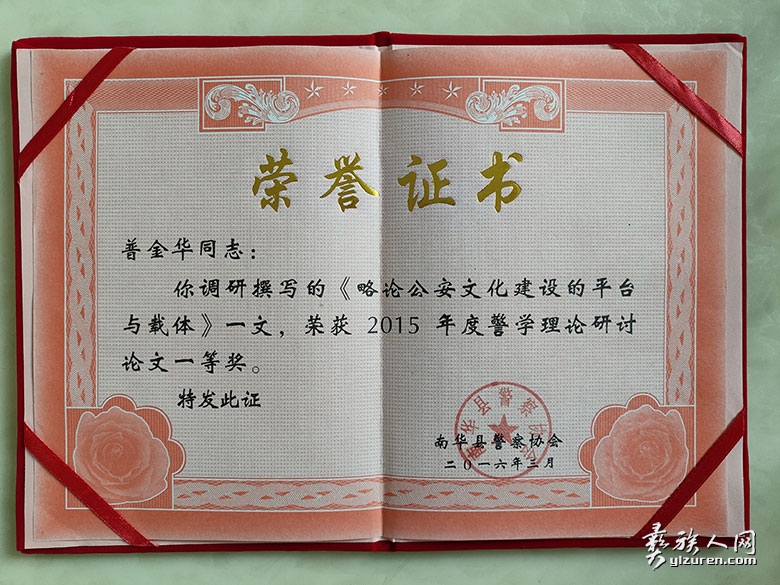 荣誉证书
普金华同志：
你调研撰写的《略论公安文化建设的平台
与载体》一文，荣获 2015 年度警学理论研讨
论文一等奖。
特发此证
南华县警察协会
南华县警察协会
二〇一六年三月
彝族人网
yizuren.com